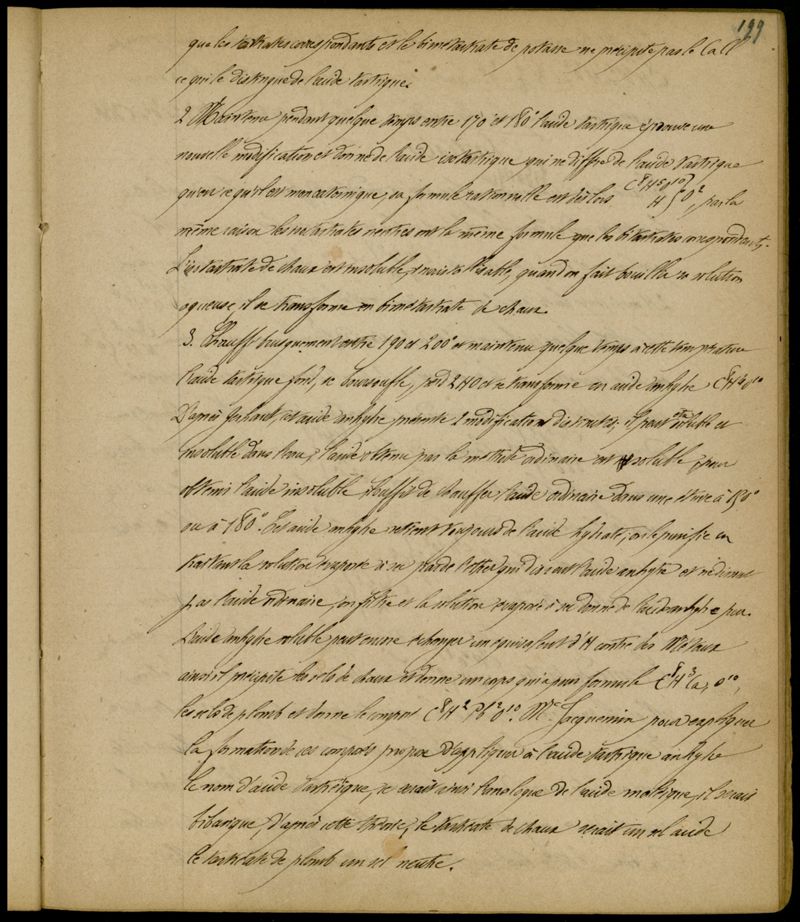 199
que les tartrates correspondants et le bimétatartrate de potasse ne précipite pas le Ca Cl
ce qui le distingue de l'acide tartrique.
2 Maintenu pendant quelque temps entre 170 et 180° l'acide tartrique éprouve une
nouvelle modification et donne de l'acide isotartrique qui ne diffère de l'acide tartrique
qu'en ce qu'il est monoatomique, sa formule rationnelle est dès lors C⁸H⁵O¹⁰ H } O², par la
même raison les isotartrates neutres ont la même formule que les bitartrates correspondants.
L'isotartrate de chaux est insoluble, quand on fait bouillir sa solution
aqueuse, il se transforme en bimétatartrate de chaux.
3. Chauffé brusquement entre 190 et 200° et maintenu quelque temps à cette température
l'acide tartrique fond, se boursouffle, perd 2HO et se transforme en acide anhydre C⁸H⁴O¹⁰
D'après cet acide anhydre présente 2 modifications distinctes, il peut être soluble et
insoluble dans l'eau, l'acide obtenu par la méthode ordinaire est soluble, pour
obtenir l'acide insoluble il suffit de chauffer l'acide ordinaire dans une étuve à 150°
ou à 180°. Cet acide anhydre retient toujours de l'acide hydraté, on le purifie en
traitant la solution évaporée à sec par de l'éther qui dissout l'acide anhydre et
pas l'acide ordinaire, on filtre et la solution évaporée à sec donne de l'acide anhydre pur.
L'acide anhydre soluble peut encore échanger un équivalent d'H contre les Métaux
ainsi il précipite les sels de chaux et donne un corps qui a pour formule C⁸H³Ca, O¹⁰,
les sels de plomb et donne le composé C⁸H²Pb²O¹⁰. Mr Jacquemin pour expliquer
la formation de ces composés propose d'appliquer à l'acide tartrique anhydre
le nom d'acide tartréique, ce serait ainsi l'homologue de l'acide malique, il serait
bibasique, d'après cette théorie, le tartréate de chaux serait un sel acide
le tartréate de plomb un sel neutre.